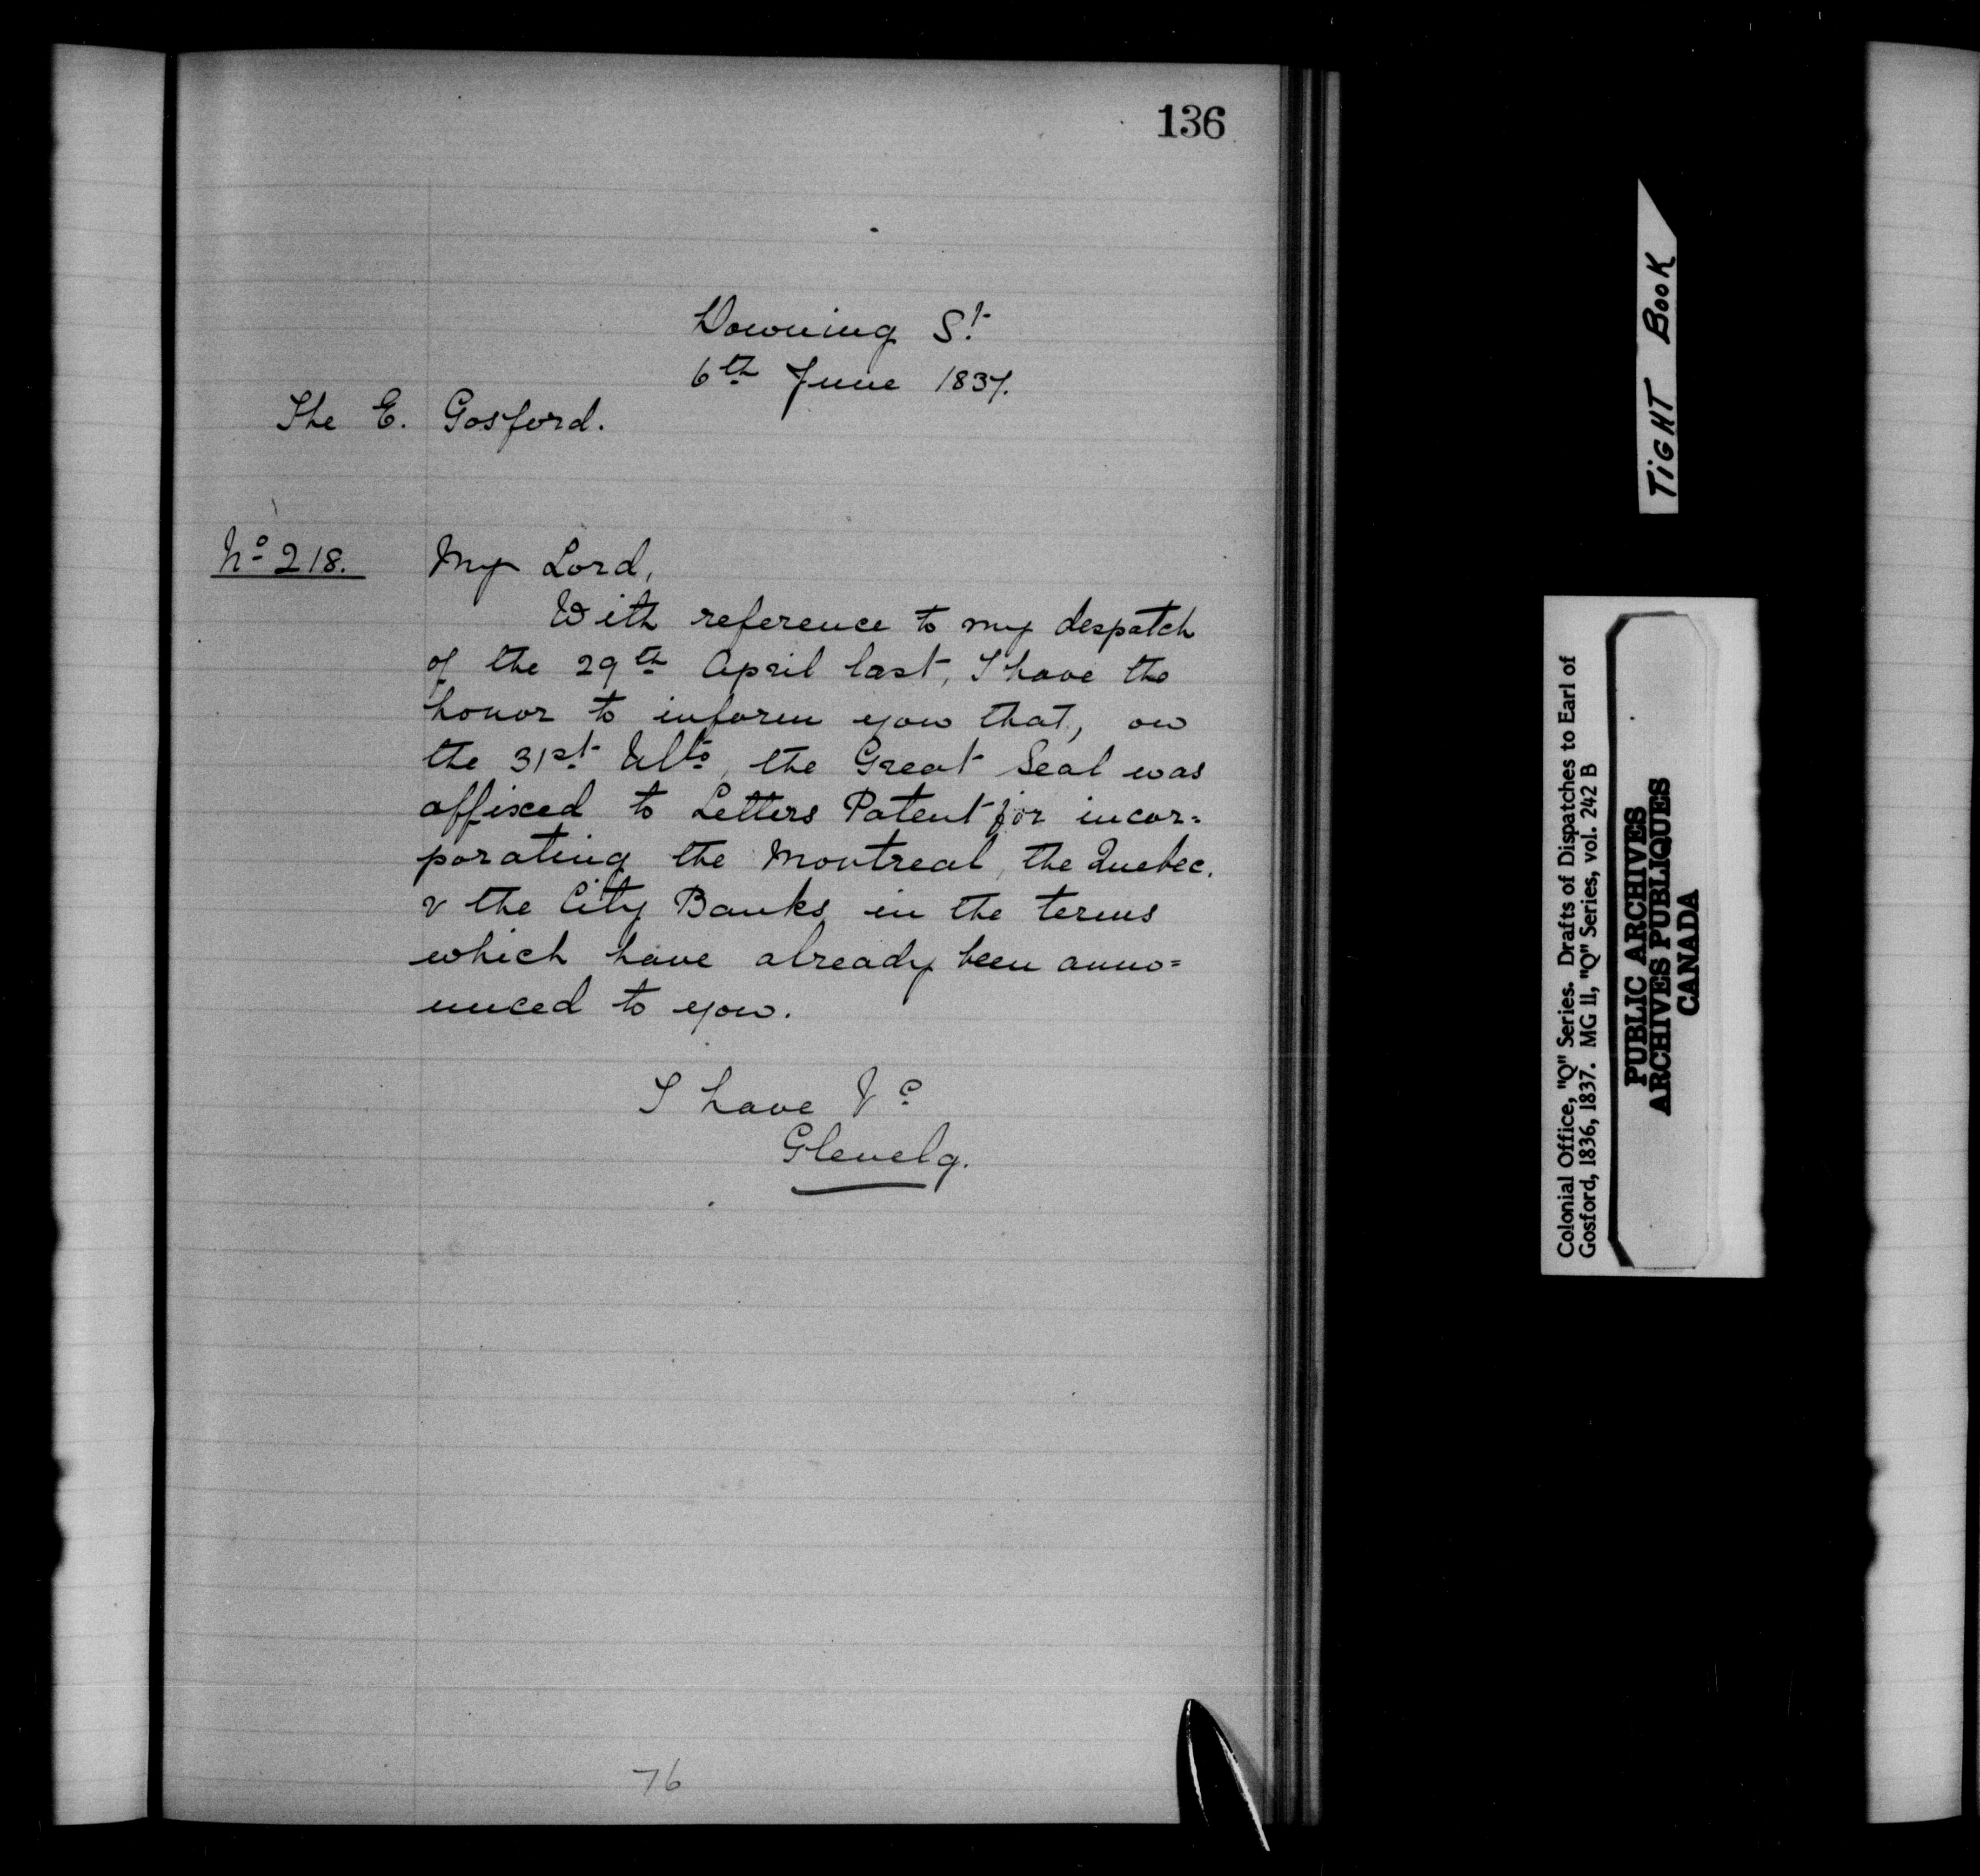 136
Downing St
6th June 1837.
The E. Gosford.
No 218.
My Lord,
With reference to my despatch
of the 29th April last, I have the
honor to inform you that, on
the 31st Ulto, the Great Seal was
affixed to Letters Patent for incor=
porating the Montreal, the Quebec,
& the City Banks, in the terms
which have already been anno=
unced to you.
I have &c
Glenelg.
76
TIGHT BOOK
Colonial Office, "Q" Series. Drafts of Dispatches to Earl of
Gosford, 1836, 1837. MG 11, "Q" Series, vol. 242 B
PUBLIC ARCHIVES
ARCHIVES PUBLIQUES
CANADA